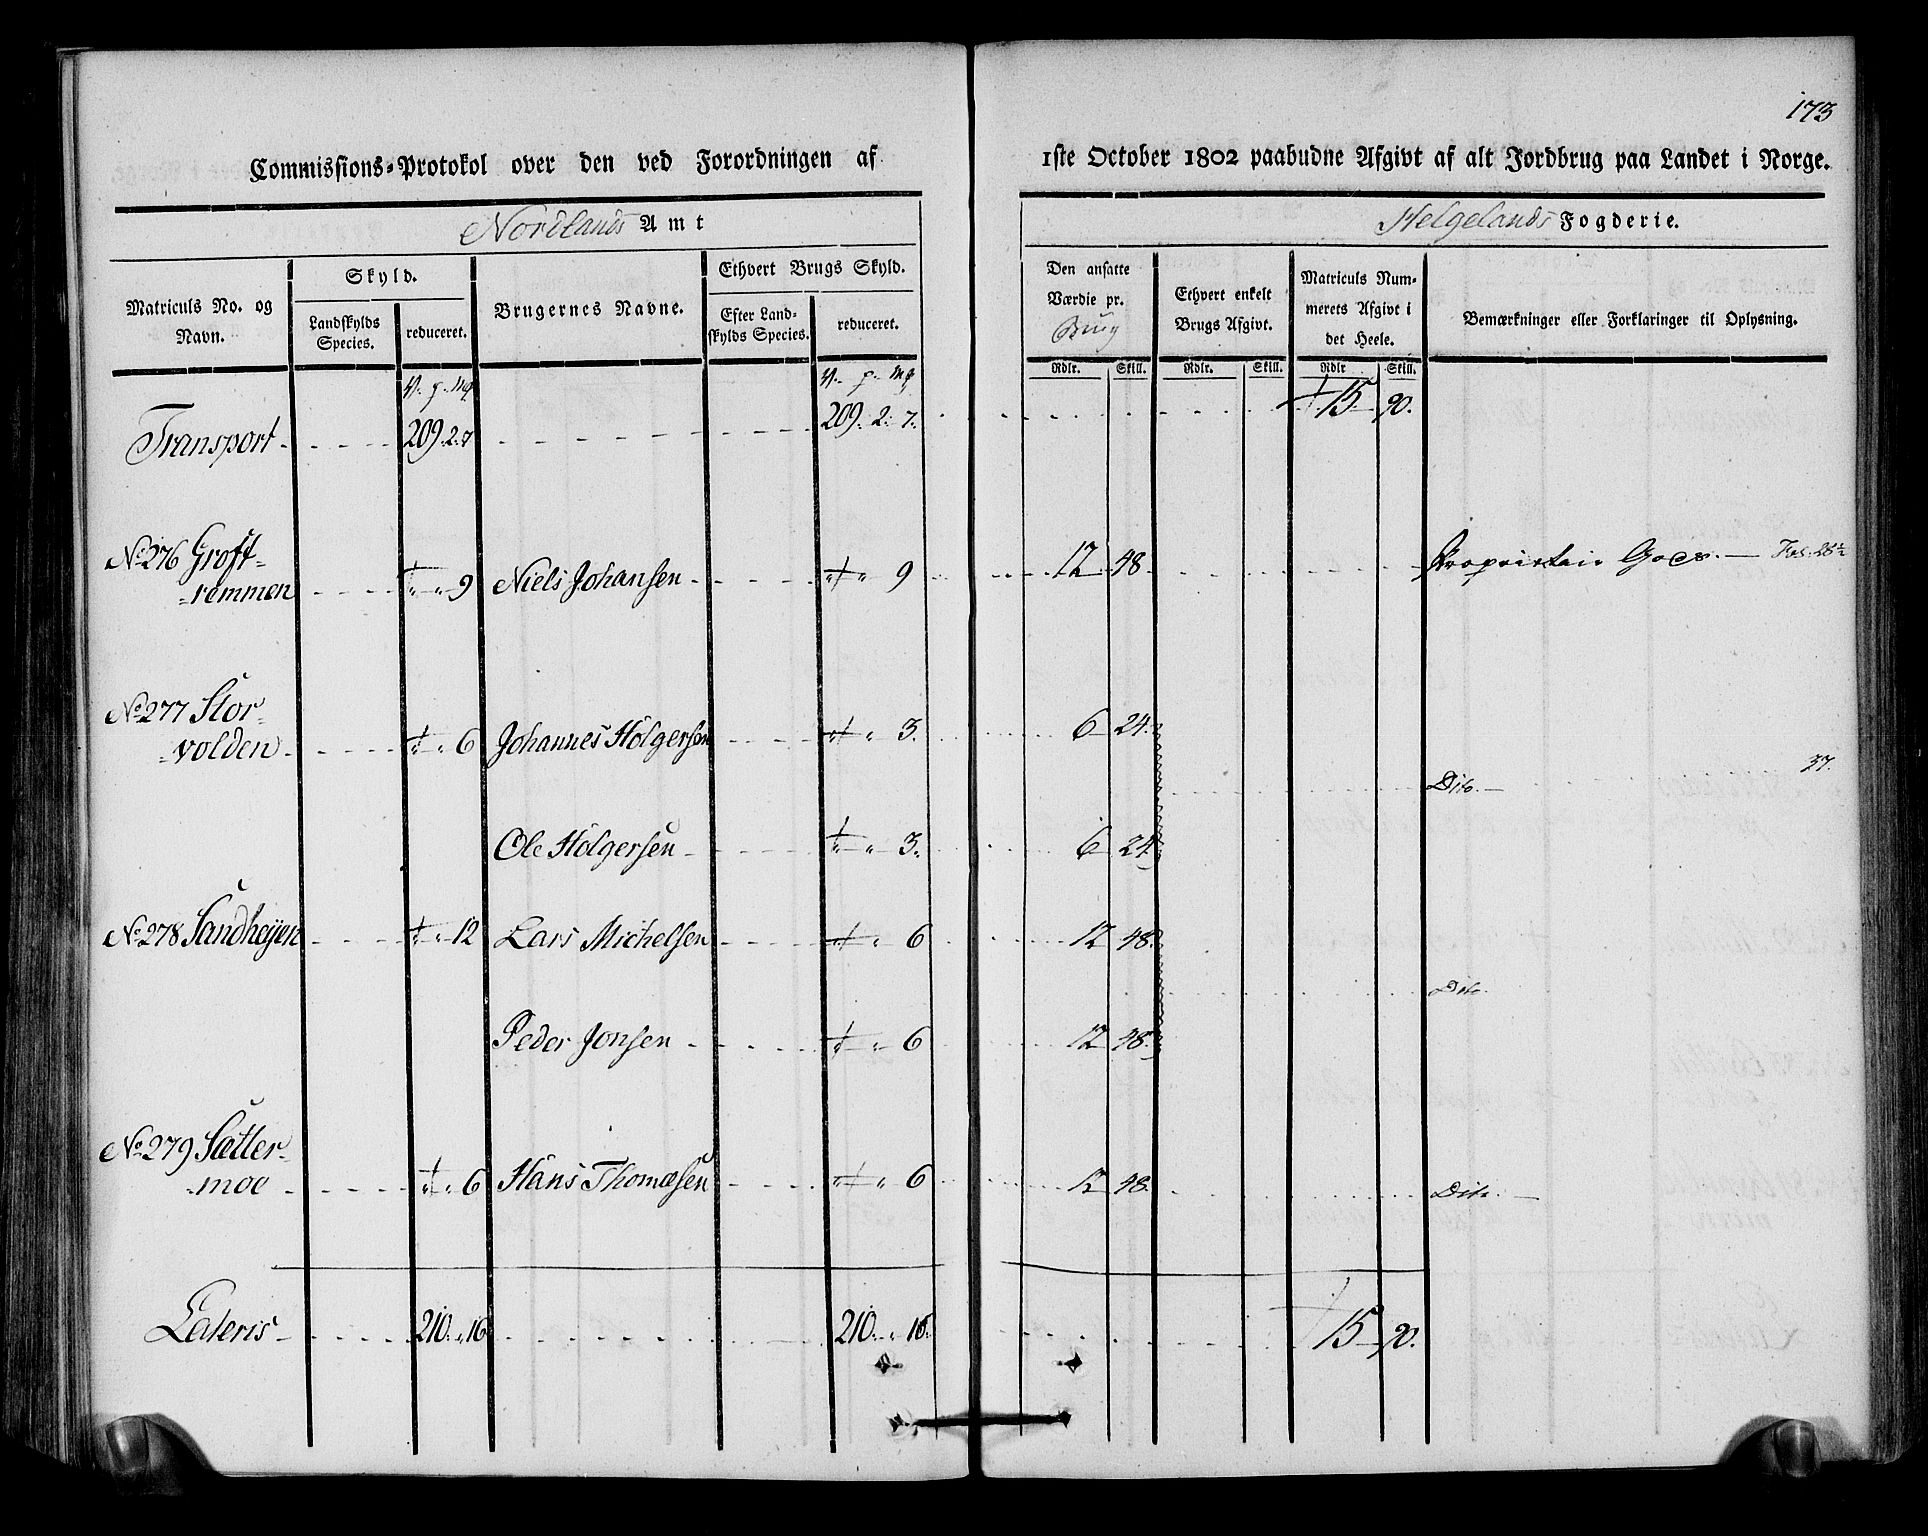 173
Commissions-Protokol over den ved Forordningen af 1ste October 1802 paabudne Afgivt af alt Jordbrug paa Landet i Norge.
Nordlands Amt Helgelands Fogderie.
Matriculs No. og Navn.
Skyld.
Landskylds Species.
reduceret.
Brugernes Navne.
Ethvert Brugs Skyld.
Efter Landskylds Species.
reduceret.
Den ansatte Værdie pr. Brug
Ethvert enkelt Brugs Afgivt.
Matriculs Nummerets Afgivt i det Heele.
Bemærkninger eller Forklaringer til Oplysning.
Rdlr. Skill. Rdlr. Skill. Rdlr Skill.
V. p. mg V. p. mg
Transport 209. 2. 7 209. 2. 7. 15 90.
No 276 Groft-
remmen " " 9 Niels Johansen " " 9 12 48. Proprietair Gods. Fol. 28½
No 277 Stor-
volden " " 6 Johannes Holgersen " " 3. 6 24.
Dito. 37.
Ole Holgersen " " 3. 6 24.
No 278 Sandhøjen " " 12 Lars Michelsen " " 6 12 48.
Dito.
Peder Jonsen " " 6 12 48.
No 279 Sætter-
moe " " 6 Hans Thomæsen " " 6 12 48. Dito.
Lateris 210. " 16 210. " 16. 15 90.